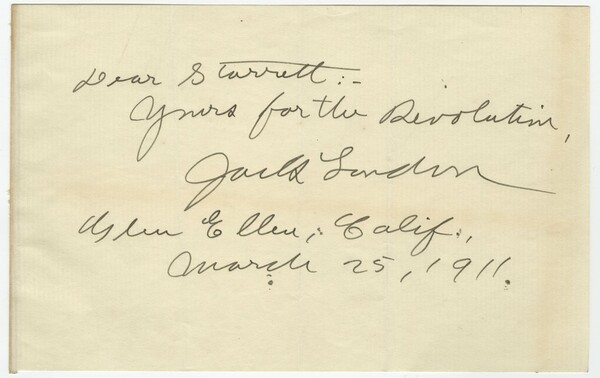 Dear Starrett:-
Yours for the Revolution,
Jack London
Glen Ellen, Calif.,
March 25, 1911.